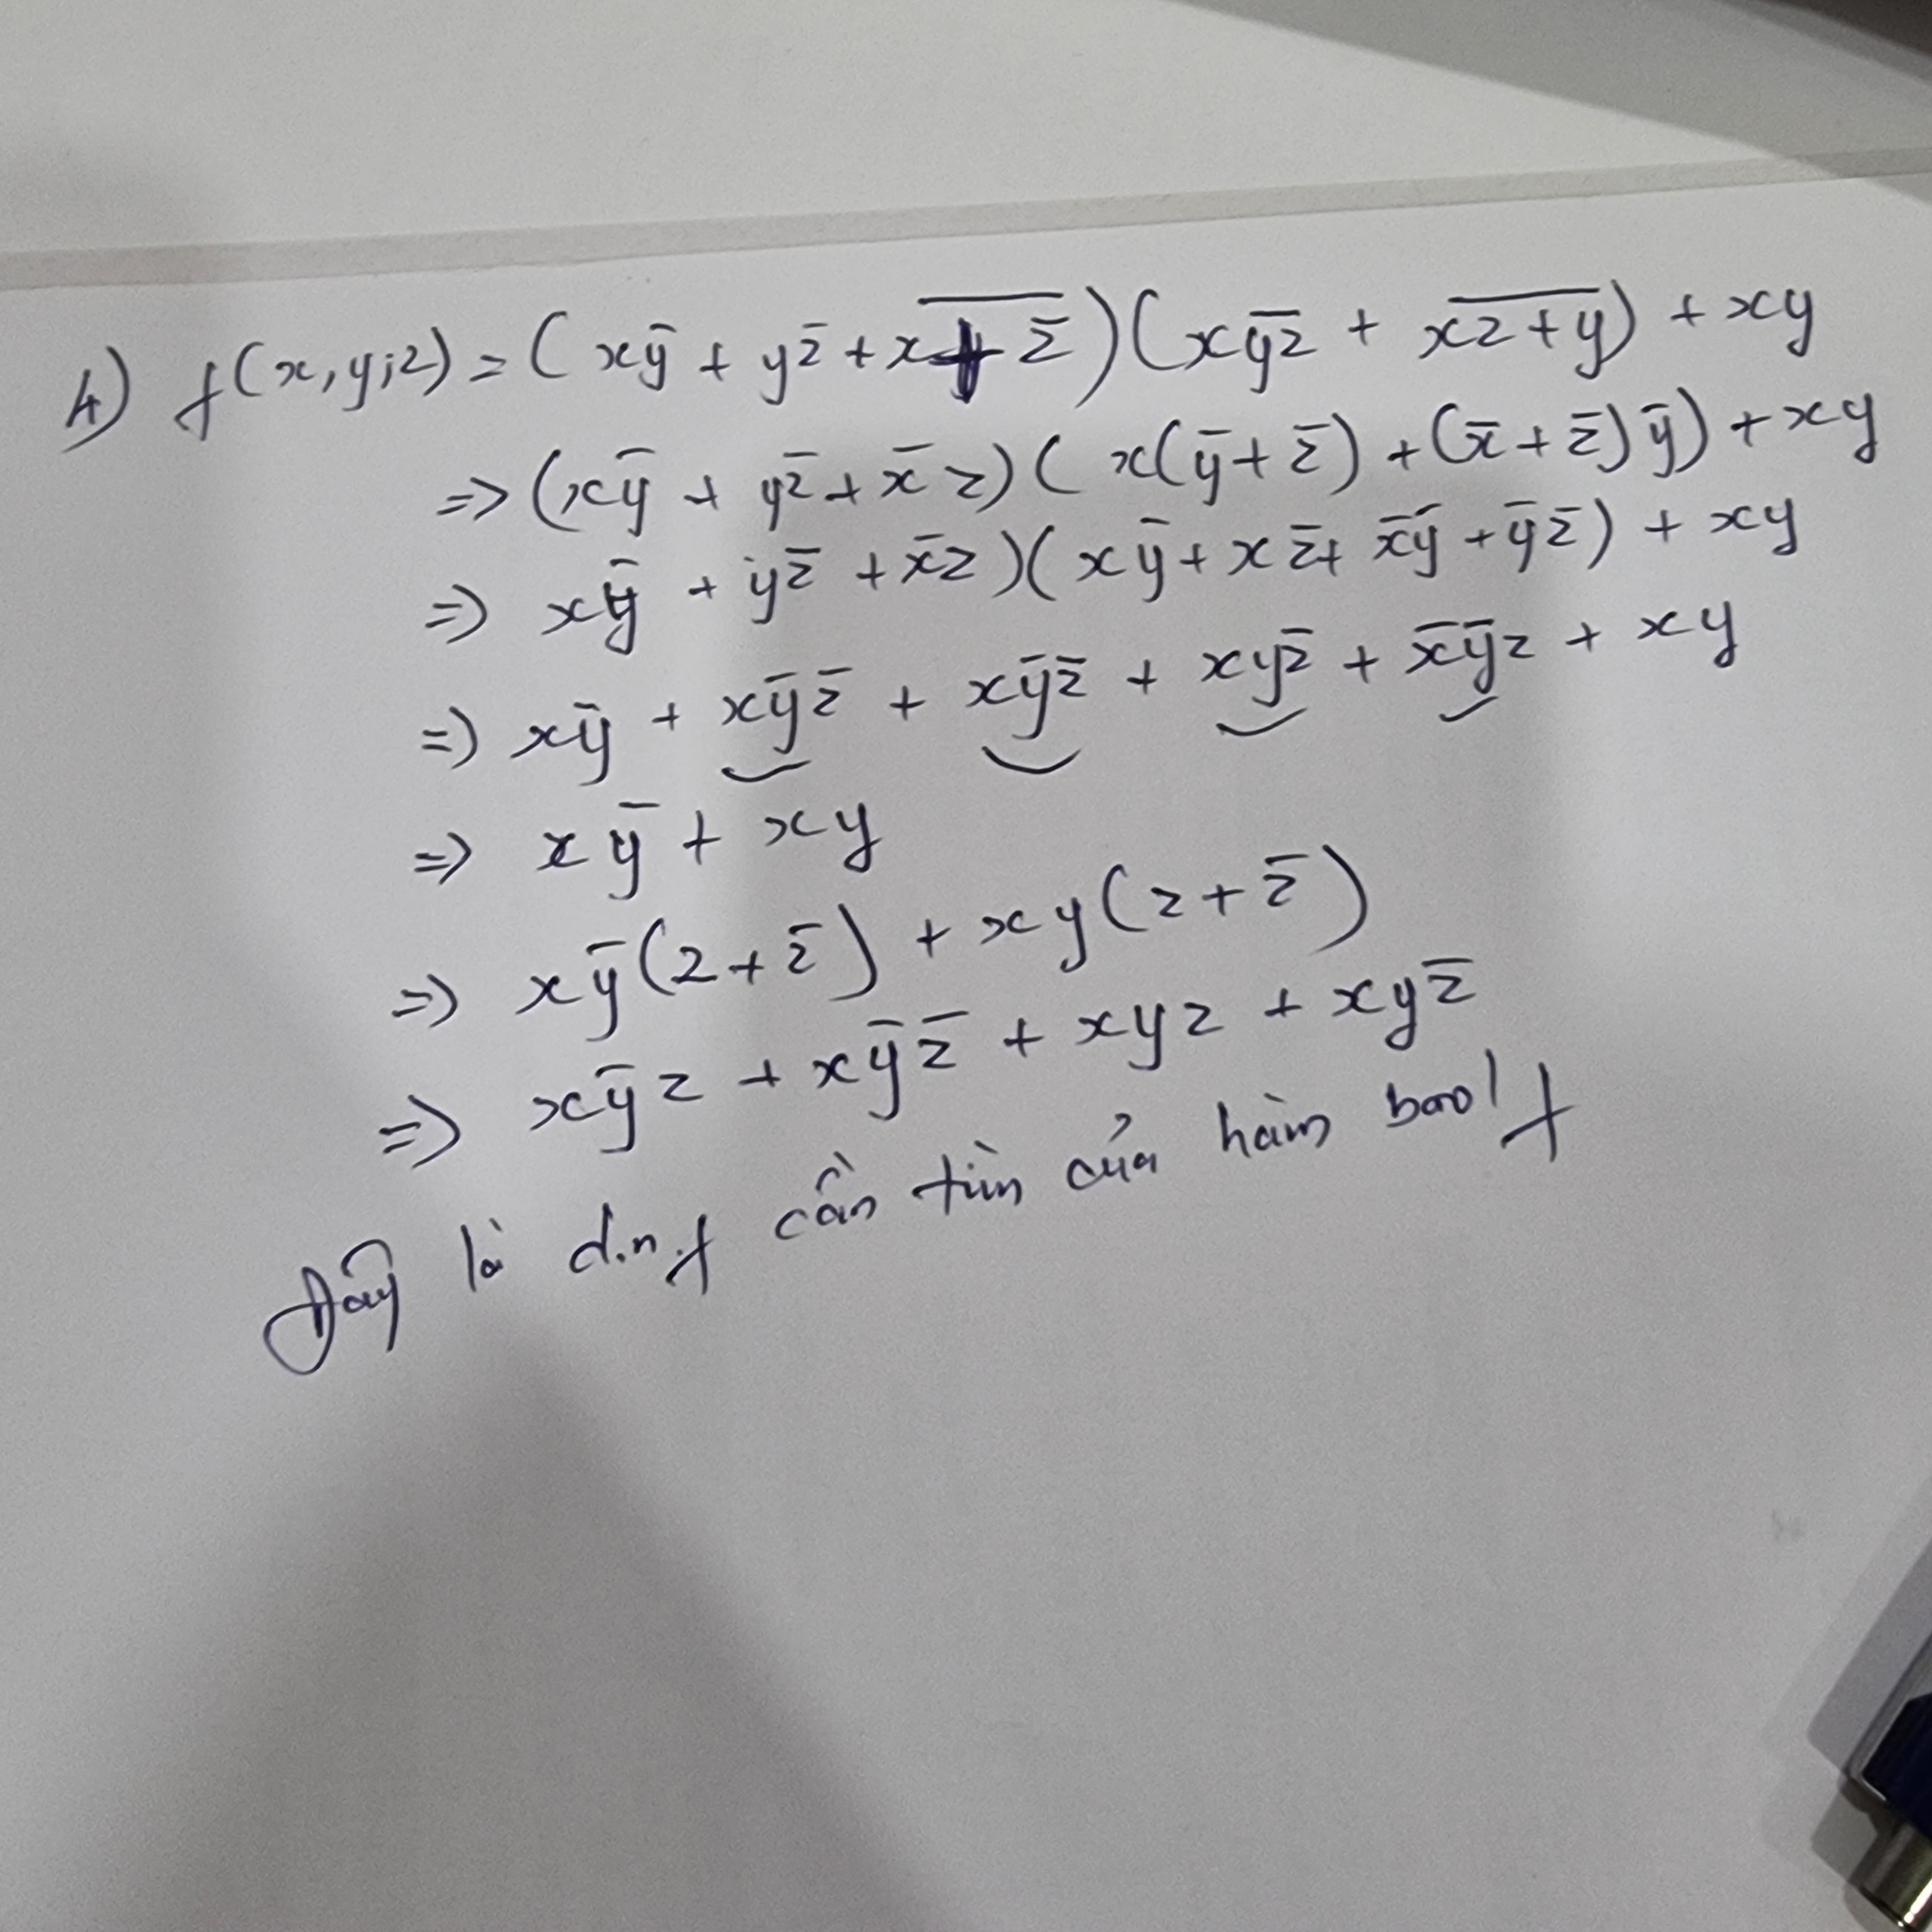 4) f(x,y,z) = (xȳ + yz̄ + x̅ ̅+̅ ̅z̄)(x y̅z̅ + x̅z̅ ̅+̅ ̅y̅) + xy
=> (xȳ + yz̄ + x̄z)( x(ȳ + z̄) + (x̄ + z̄)ȳ) + xy
=> xȳ + yz̄ + x̄z)(xȳ + xz̄ + x̄ȳ + ȳz̄) + xy
=> xȳ + xȳz̄ + xȳz̄ + xyz̄ + x̄ȳz + xy
=> xȳ + xy
=> xȳ(z + z̄) + xy(z + z̄)
=> xȳz + xȳz̄ + xyz + xyz̄
Đây là d.n.f cần tìm của hàm bool f